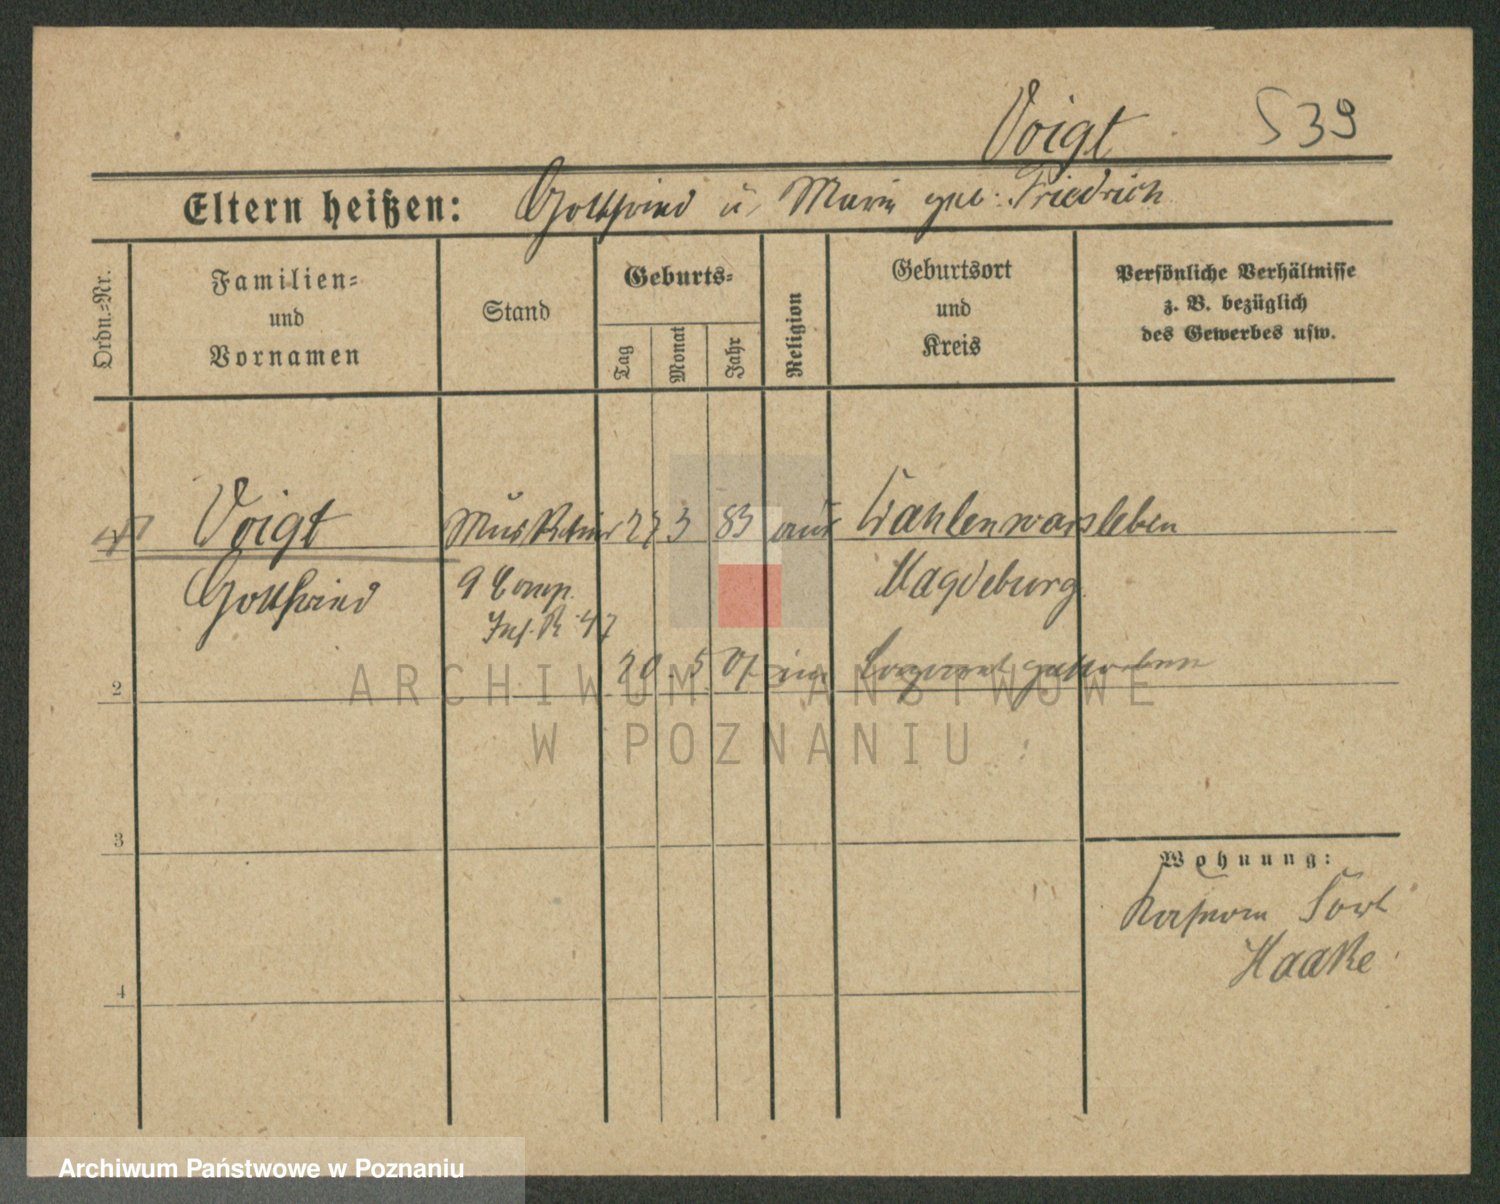 Voigt 539
Eltern heißen: Gottfried u. Marie geb. Friedrich
Ordn.-Nr.
Familien-
und
Vornamen
Stand
Geburts-
Tag
Monat
Jahr
Religion
Geburtsort
und
Kreis
Persönliche Verhältnisse
z. B. bezüglich
des Gewerbes usw.
Voigt Musketier 27 3 83 Wahlenwarsleben
Gottfried 9 Comp. Magdeburg
Inf. R. 47
2 20. 5 07 im Lazarett gestorben
3
4
Wohnung:
Kasern Fort
Haake
ARCHIWUM PAŃSTWOWE
W POZNANIU
Archiwum Państwowe w Poznaniu